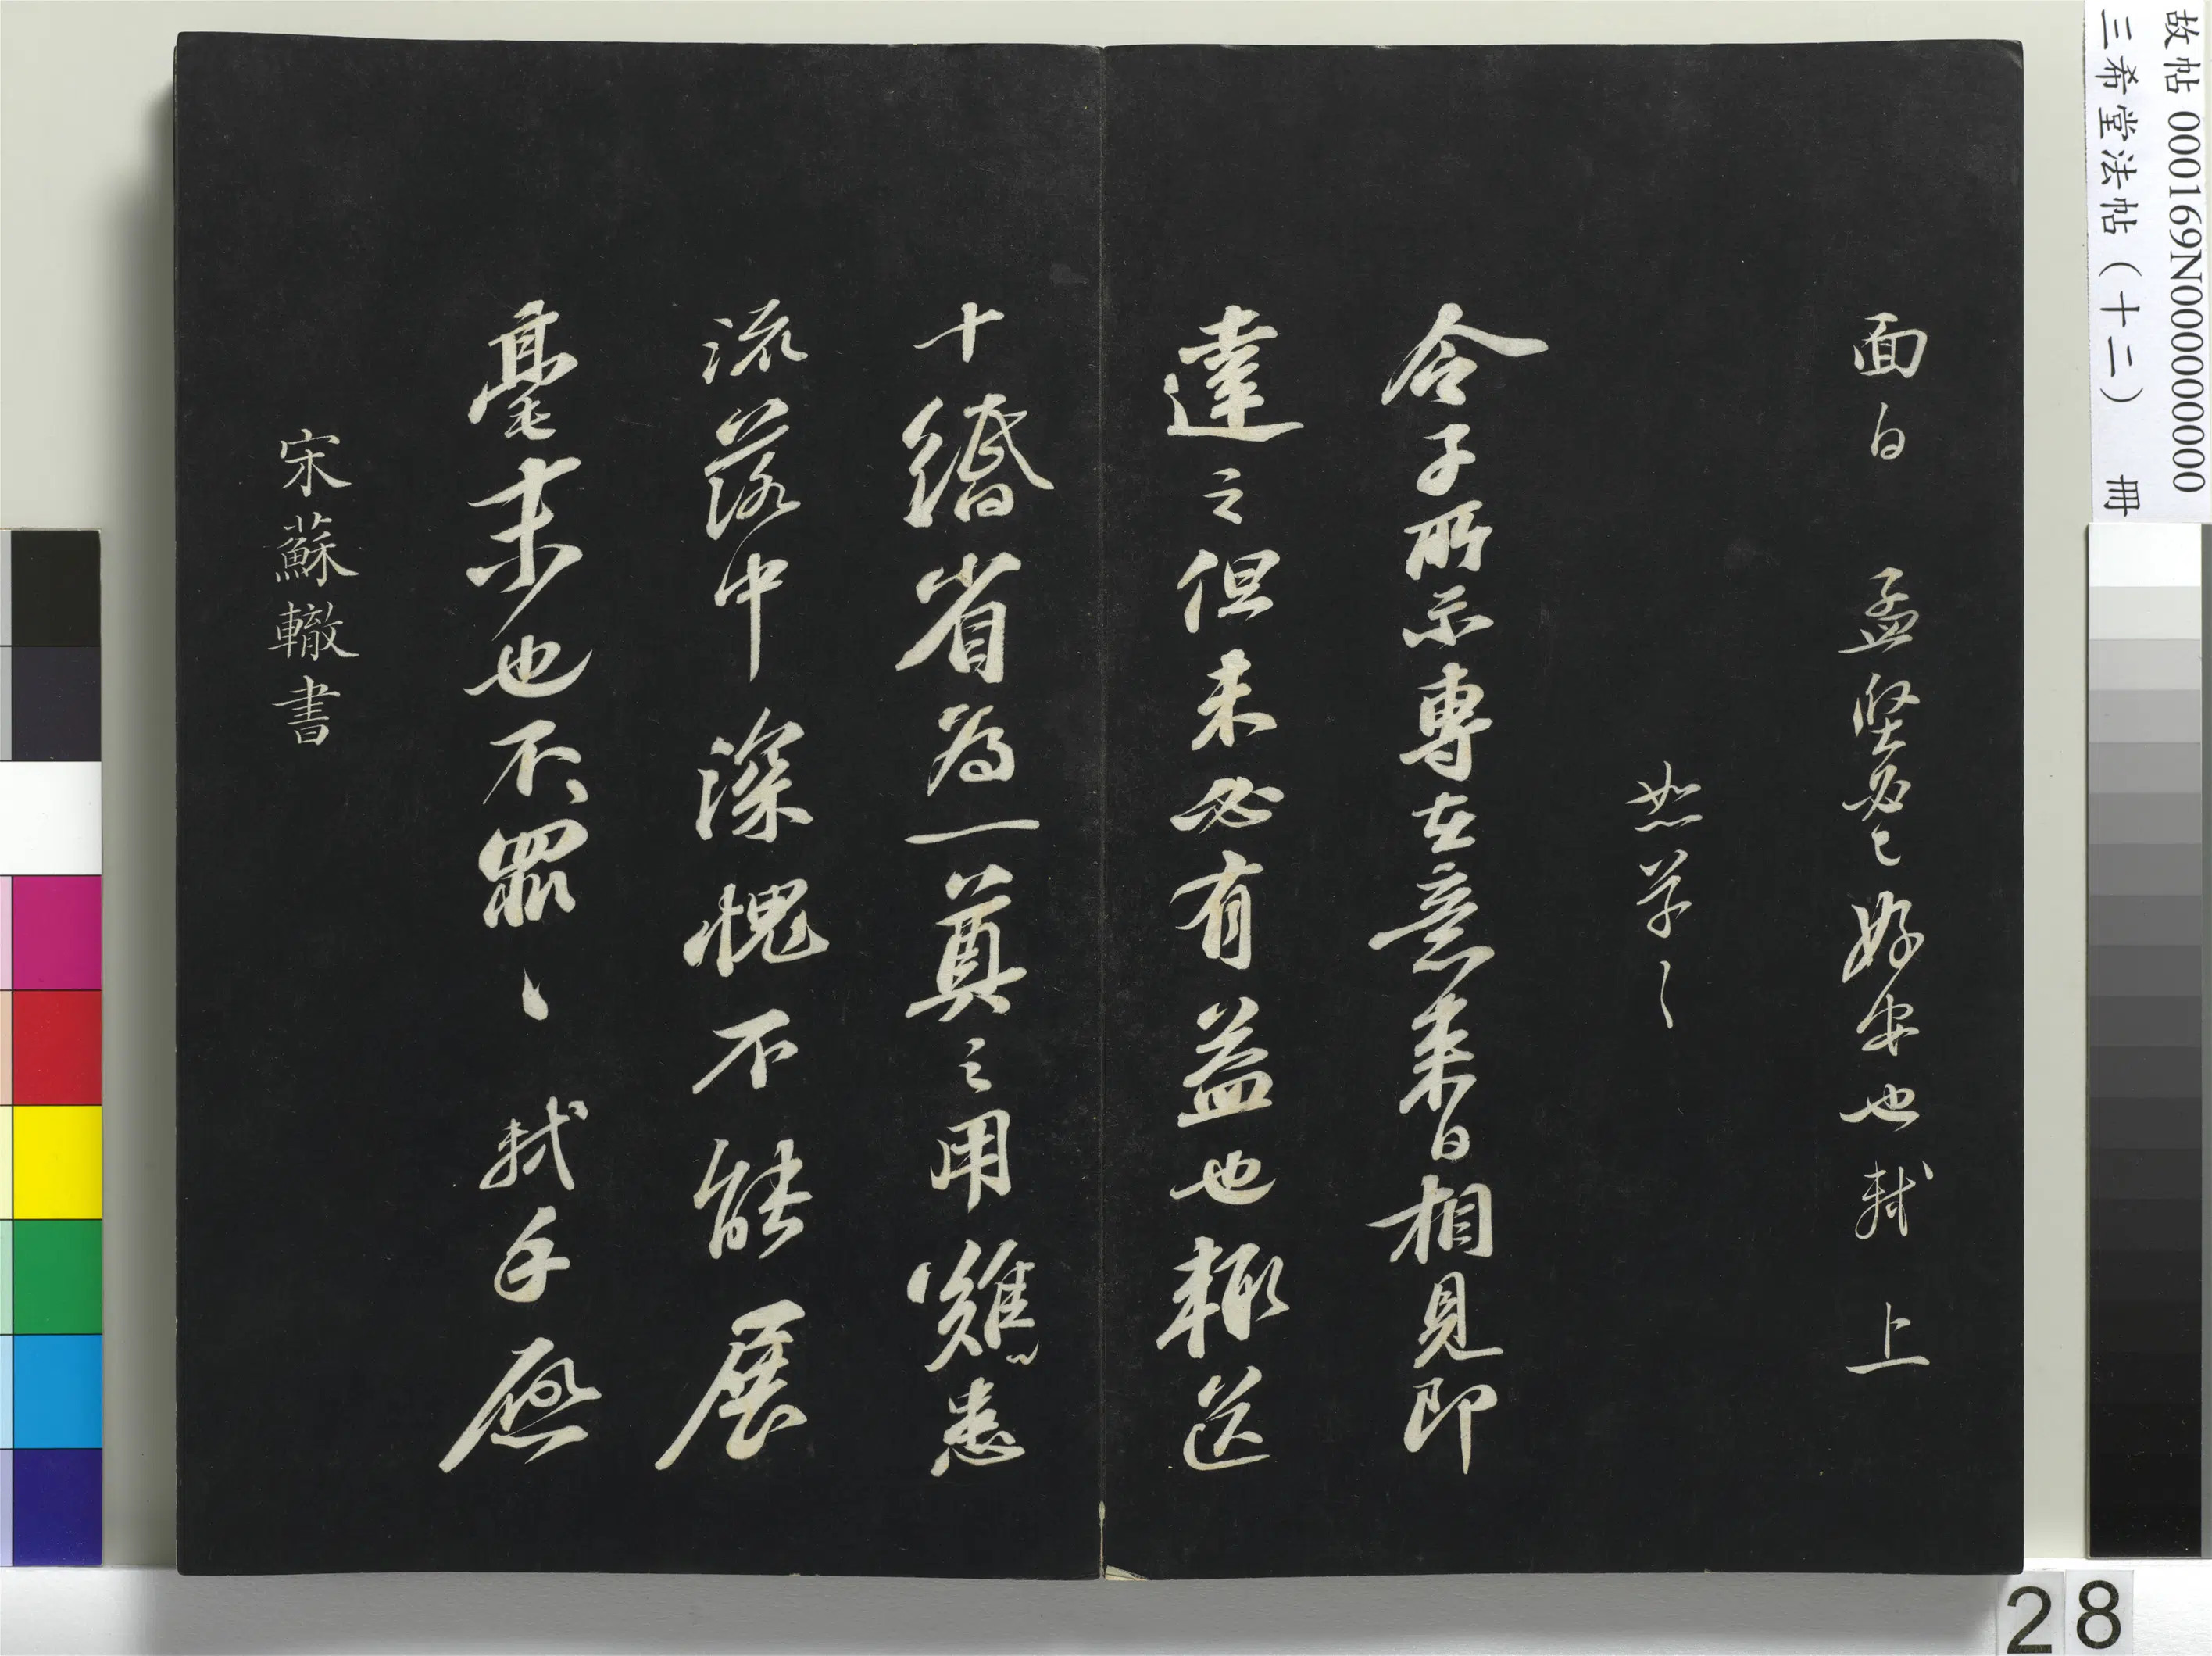 故帖 000169N000000000
三希堂法帖（十二） 冊
面白 孟堅必已好安也 軾 上
恕草〻
令子所示專在意來日相見即
達之但未必有益也輒送
十縑省為一奠之用雖患
流落中深愧不能展
毫末也不罪〻 軾手啟
宋蘇轍書
28